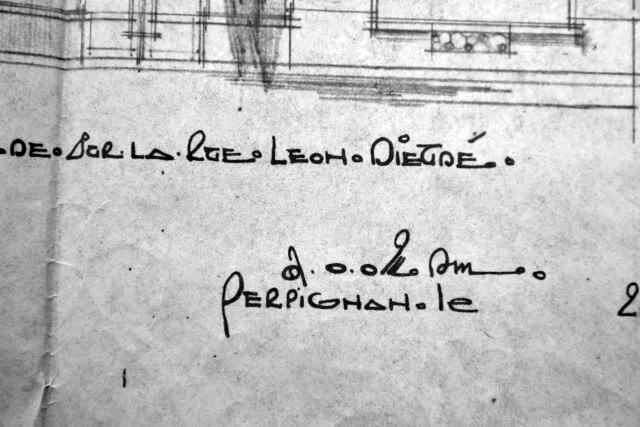 .DE. SUR. LA. RUE. LEON. DIEUDÉ..
à. 0.02. P.m..
PERPIGNAN. le 2